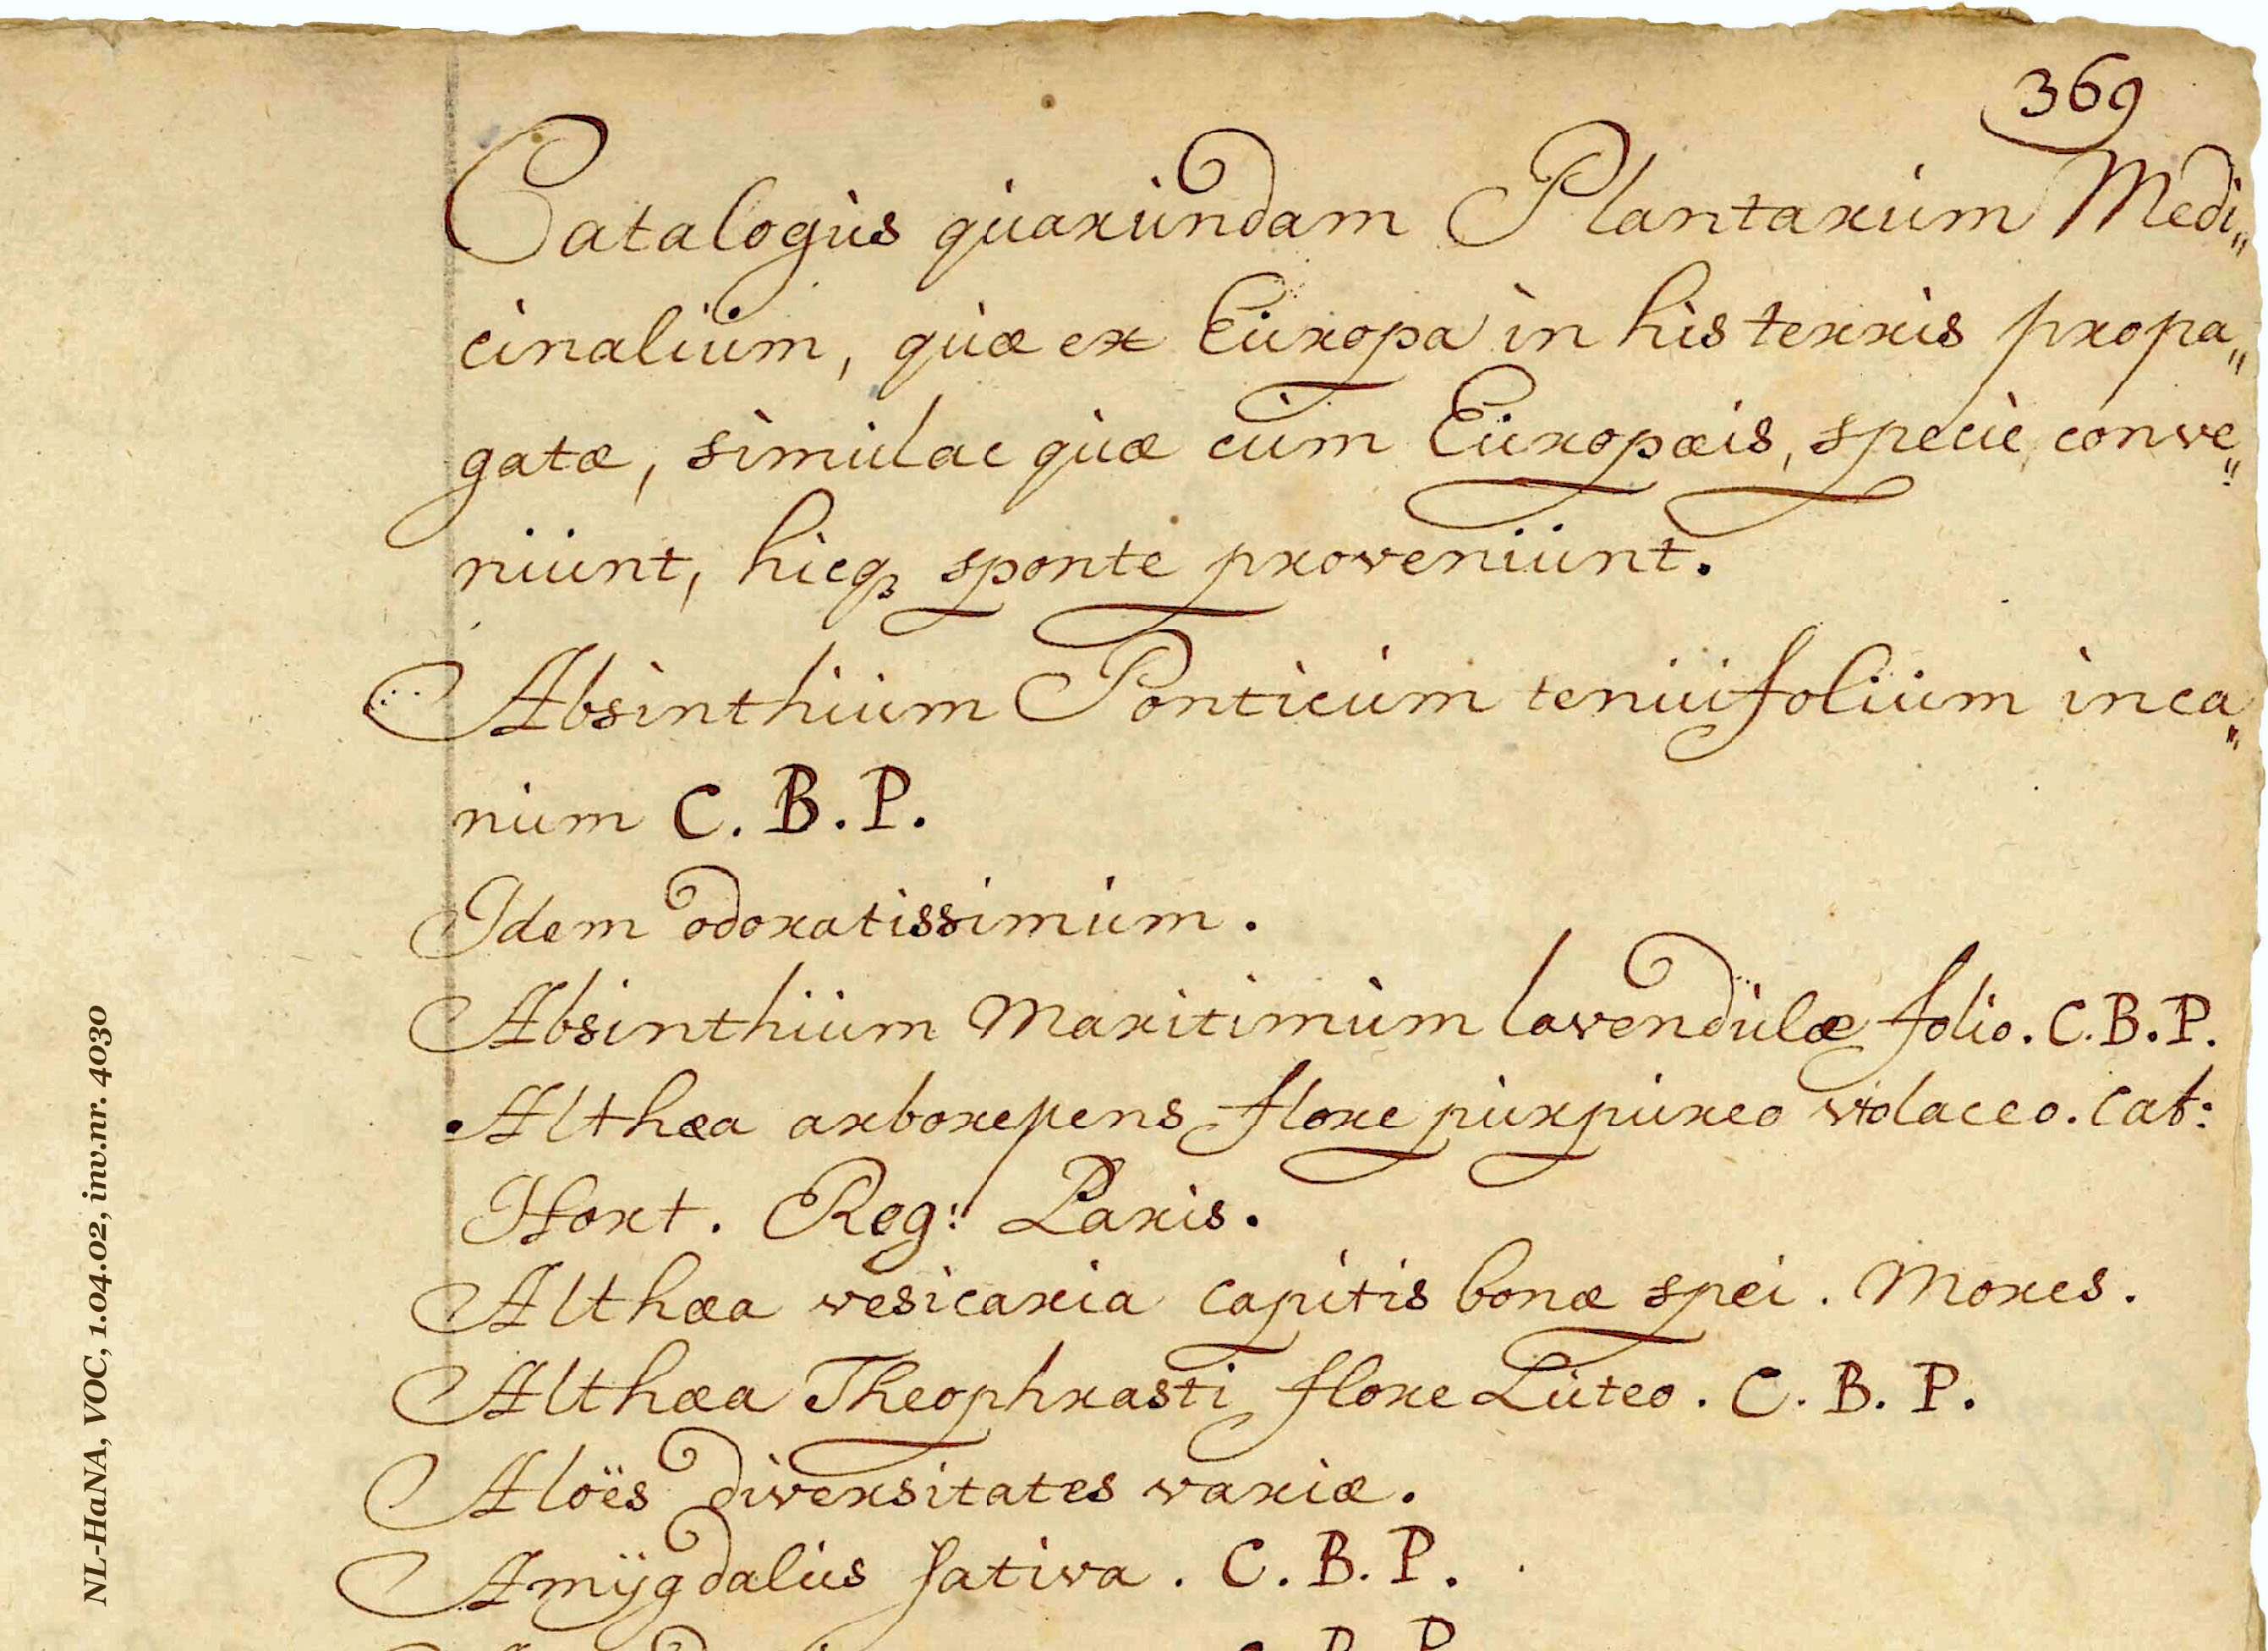 369
Catalogus quarundam Plantarum Medi„
cinalium, quæ ex Europa in his terris propa„
gatæ, simulac quæ cum Europæis, specie conve„
niunt, hicq₃ sponte proveniunt.
Absinthium Ponticum tenuifolium inca„
num C. B. P.
Idem odoratissimum.
Absinthium Maritimum lavendulæ folio. C. B. P.
Althæa arborepens flore purpureo violaceo. Cat:
Hort. Reg: Paris.
Althæa vesicaria capitis bonæ spei. Mores.
Althæa Theophrasti flore Luteo. C. B. P.
Aloës diversitates variæ.
Amÿgdalus sativa. C. B. P.
NL-HaNA, VOC, 1.04.02, inv.nr. 4030